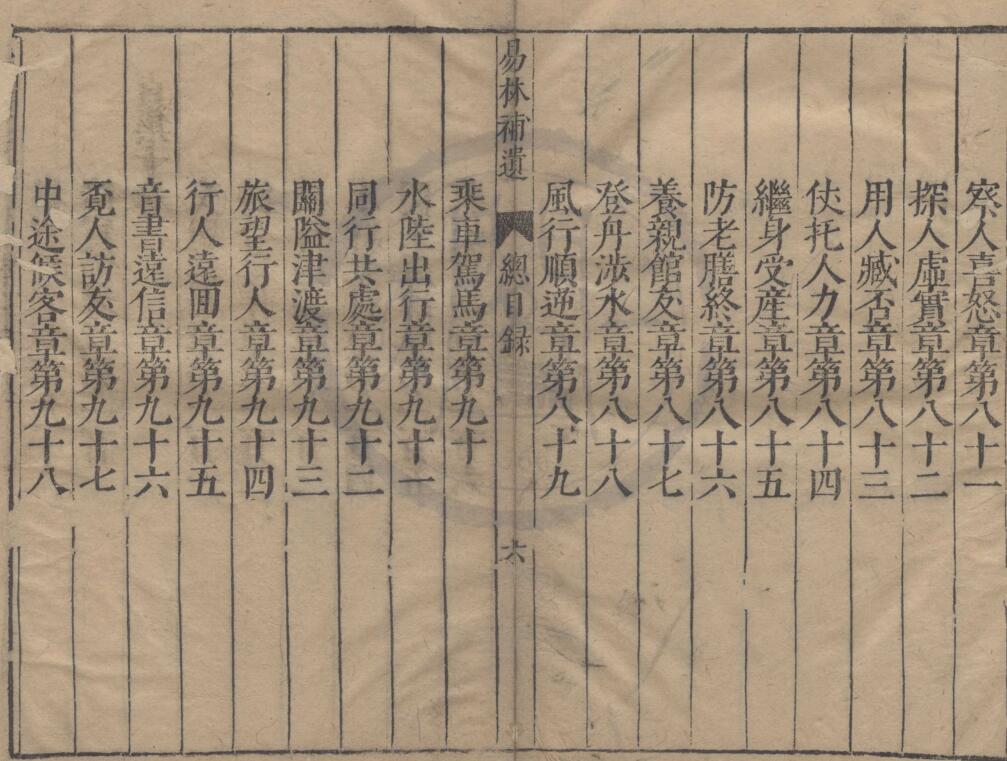 察人喜怒章第八十一
探人虛實章第八十二
用人臧否章第八十三
仗托人力章第八十四
繼身受產章第八十五
防老膳終章第八十六
養親館友章第八十七
登舟涉水章第八十八
風行順逆章第八十九
易林補遺 總目録 六
乘車駕馬章第九十
水陸出行章第九十一
同行共處章第九十二
關隘津渡章第九十三
旅望行人章第九十四
行人遠回章第九十五
音書遠信章第九十六
覓人訪友章第九十七
中途候客章第九十八